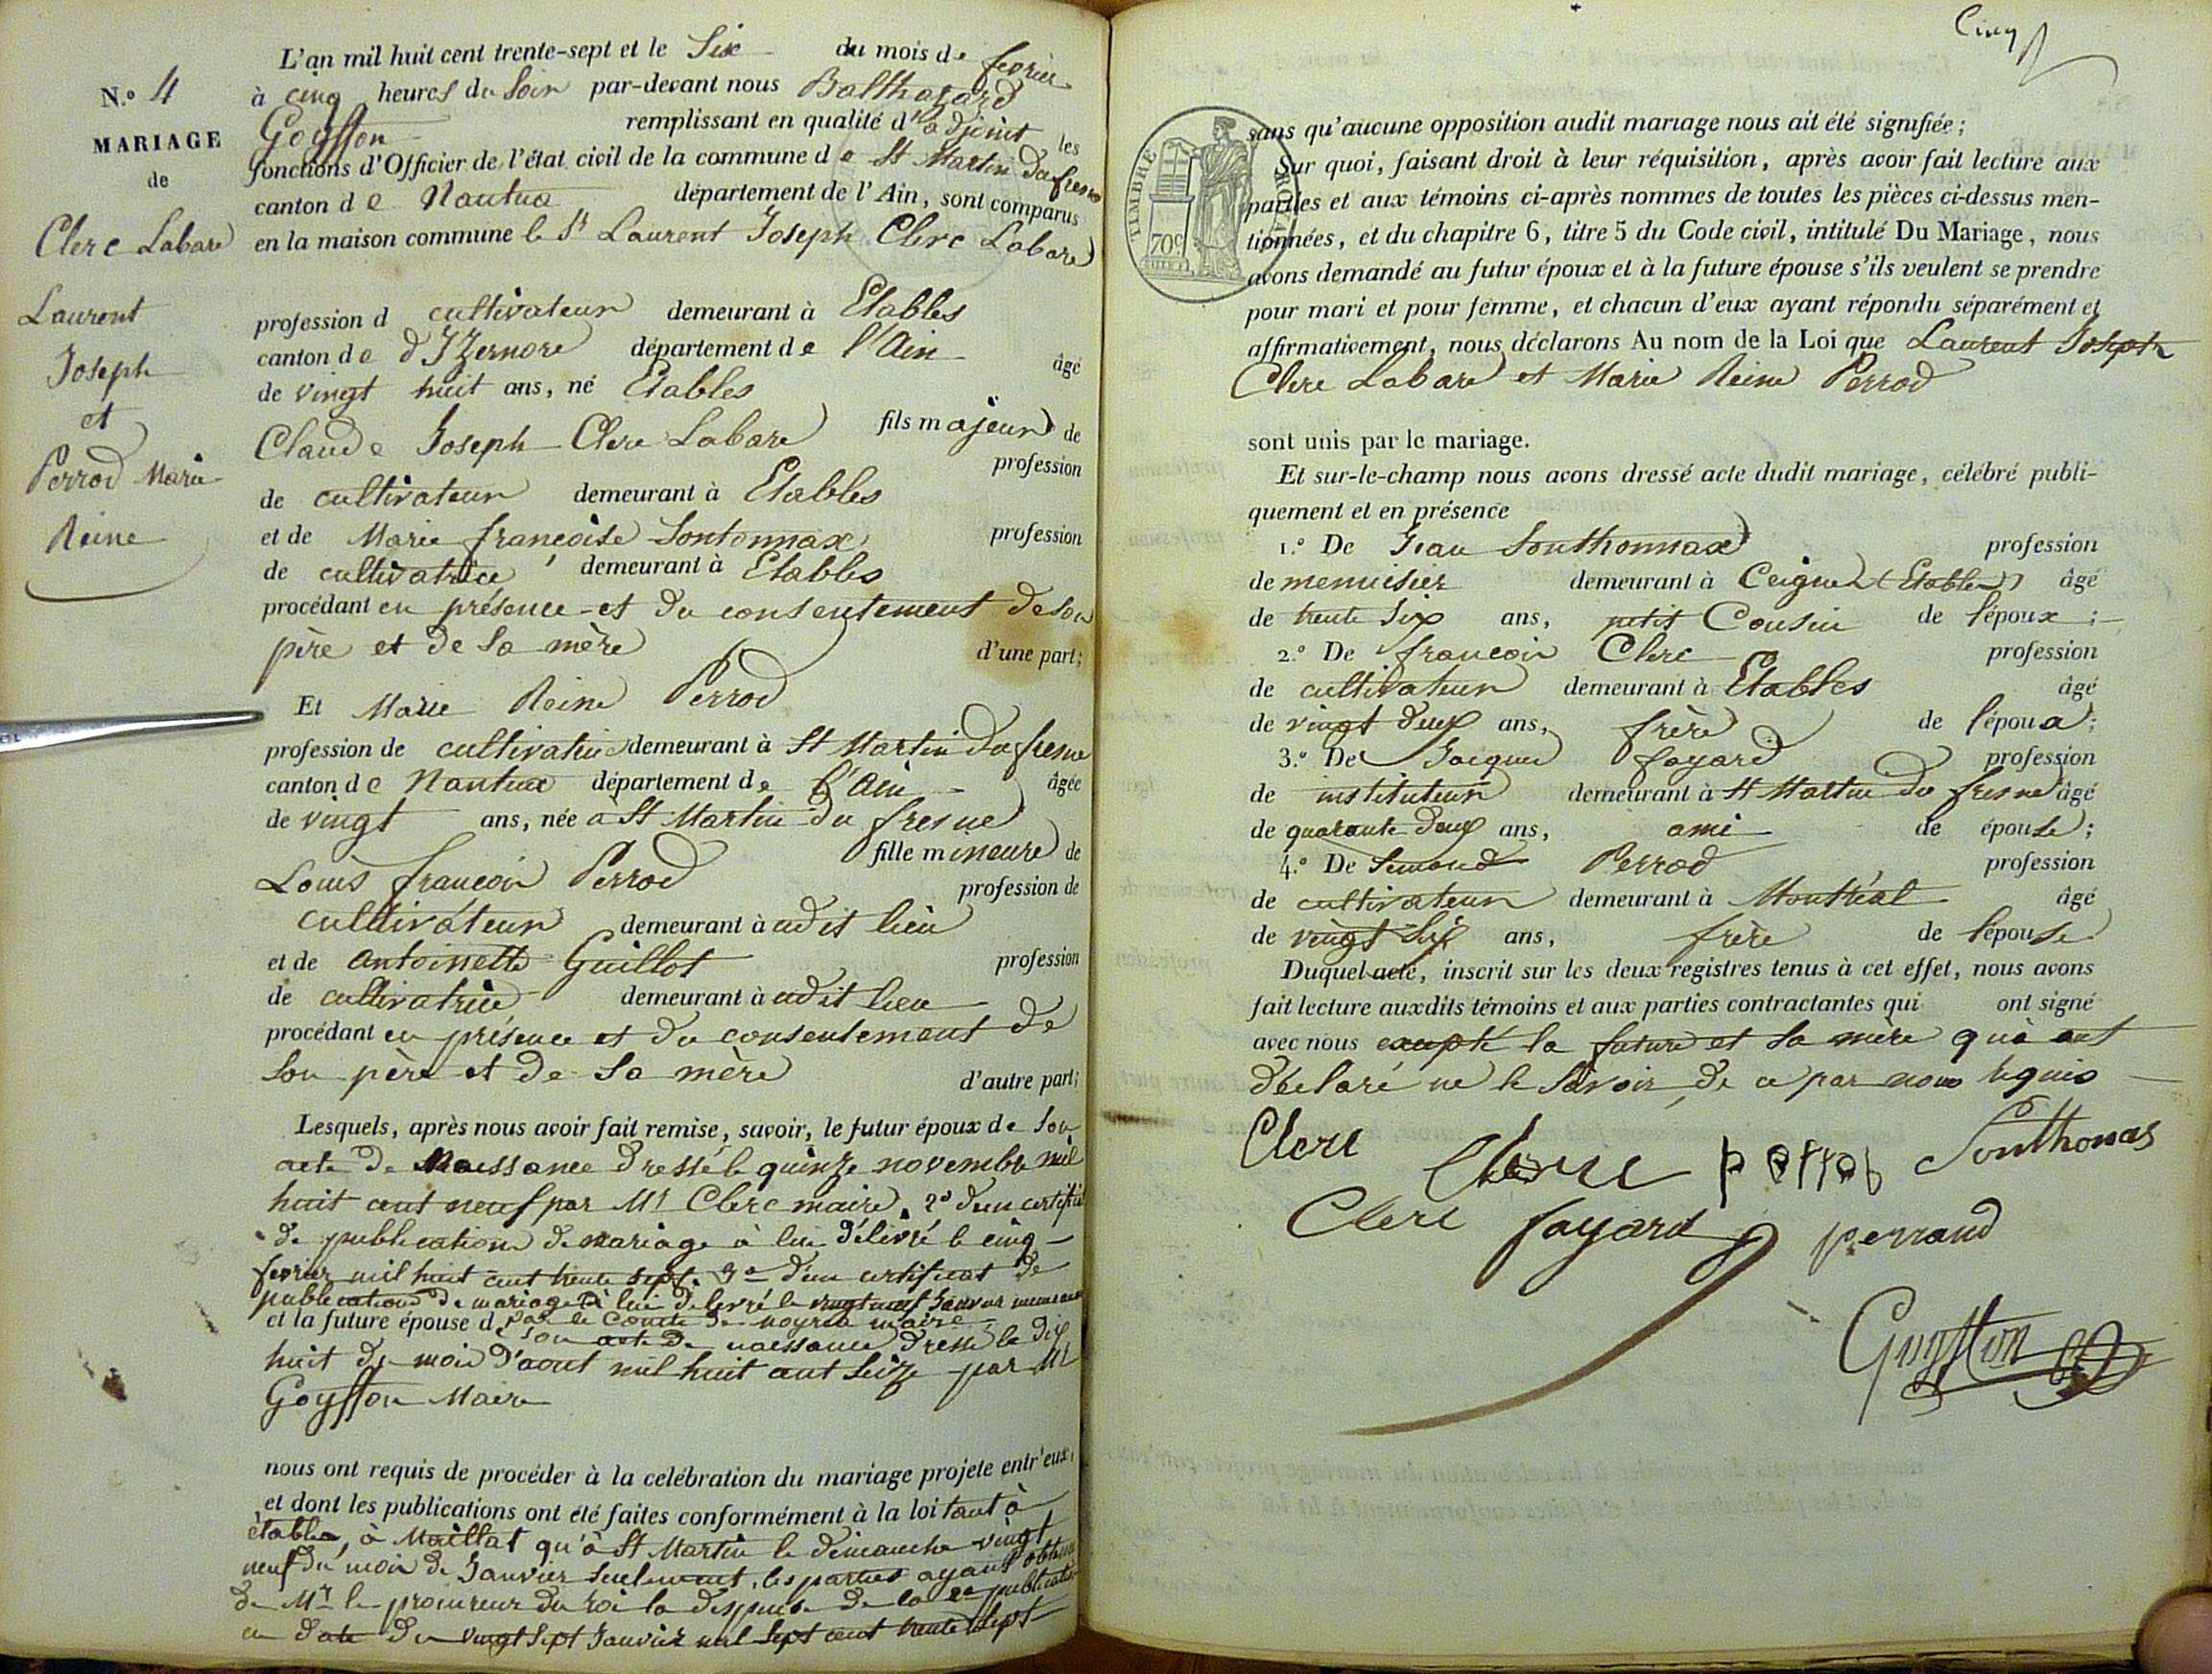 N.º 4
MARIAGE
de
Clerc Labare
Laurent
Joseph
et
Perrod Marie
Reine
L'an mil huit cent trente-sept et le Six du mois de fevrier
à cinq heures du Soir par-devant nous Balthazard
Goyffon remplissant en qualité d'adjoint les
fonctions d'Officier de l'état civil de la commune de St Martin Du fresne
canton de Nantua département de l'Ain, sont comparus
en la maison commune le Sr Laurent Joseph Clerc Labare
profession d cultivateur demeurant à Etables
canton de d'IZernore département de l'Ain âgé
de vingt huit ans, né Etables
fils majeur de
Claude Joseph Clerc Labare profession
de cultivateur demeurant à Etables
et de Marie françoise Sontonnax profession
de cultivatrice demeurant à Etables
procédant en présence et du consentement de son
père et de sa mère d'une part;
Et Marie Reine Perrod
profession de cultivatrice demeurant à St Martin Du fresne
canton de Nantua département de l'Ain âgée
de vingt ans, née à St Martin Du fresne
fille mineure de
Louis françois Perrod profession de
cultivateur demeurant à udit lieu
et de antoinette Guillot profession
de cultivatrice demeurant à udit lieu
procédant en présence et du consentement de
son père et de sa mère d'autre part;
Lesquels, après nous avoir fait remise, savoir, le futur époux de Son
acte de Naissance dressé le quinze novembre mil
huit cent neuf par Mr Clerc maire. 2º d'un certificat
de publication de mariage à lui délivré le cinq
fevrier mil huit cent trente sept. 3º d'un certificat de
publications de mariage à lui délivré le vingt neuf Janvier meme
par le Comte de moyria maire
et la future épouse d son acte de naissance dressé le dix
huit du mois d'aout mil huit cent seize par Mr
Goyffon Maire
nous ont requis de procéder à la celébration du mariage projeté entr'eux,
et dont les publications ont été faites conformément à la loi tant à
étables, à Maillat qu'à St Martin le dimanche vingt
neuf du mois de Janvier seulement, les parties ayant obtenu
de Mr le procureur du roi la dispense de la 2e publication
en date du vingt sept Janvier mil sept cent trente sept
Cinq
TIMBRE ROYAL
70c
sans qu'aucune opposition audit mariage nous ait été signifiée;
Sur quoi, faisant droit à leur réquisition, après avoir fait lecture aux
parties et aux témoins ci-après nommes de toutes les pièces ci-dessus men-
tionnées, et du chapitre 6, titre 5 du Code civil, intitulé Du Mariage, nous
avons demandé au futur époux et à la future épouse s'ils veulent se prendre
pour mari et pour femme, et chacun d'eux ayant répondu séparément et
affirmativement, nous déclarons Au nom de la Loi que Laurent Joseph
Clerc Labare et Marie Reine Perrod
sont unis par le mariage.
Et sur-le-champ nous avons dressé acte dudit mariage, célébré publi-
quement et en présence
1.º De Jean Sonthonnax profession
de menuisier demeurant à Ceignes (Etables) âgé
de trente Six ans, petit Cousin de l'époux;
2.º De françois Clerc profession
de cultivateur demeurant à Etables âgé
de vingt deux ans, frère de l'époux;
3.º De Jacques fayard profession
de instituteur demeurant à St Martin du fresne âgé
de quarante deux ans, ami de épouse;
4.º De Simond Perrod profession
de cultivateur demeurant à Montréal âgé
de vingt Six ans, frère de l'épouse
Duquel acte, inscrit sur les deux registres tenus à cet effet, nous avons
fait lecture auxdits témoins et aux parties contractantes qui ont signé
avec nous excepté la future et sa mère qui ont
déclaré ne le savoir de ce par nous requis
Clerc Clerc perrod Sonthonas
Clerc fayard perraud
Goyffon